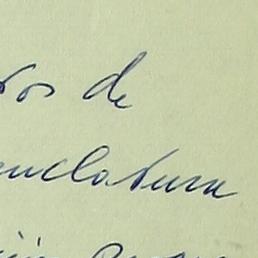 ros de
enclatura